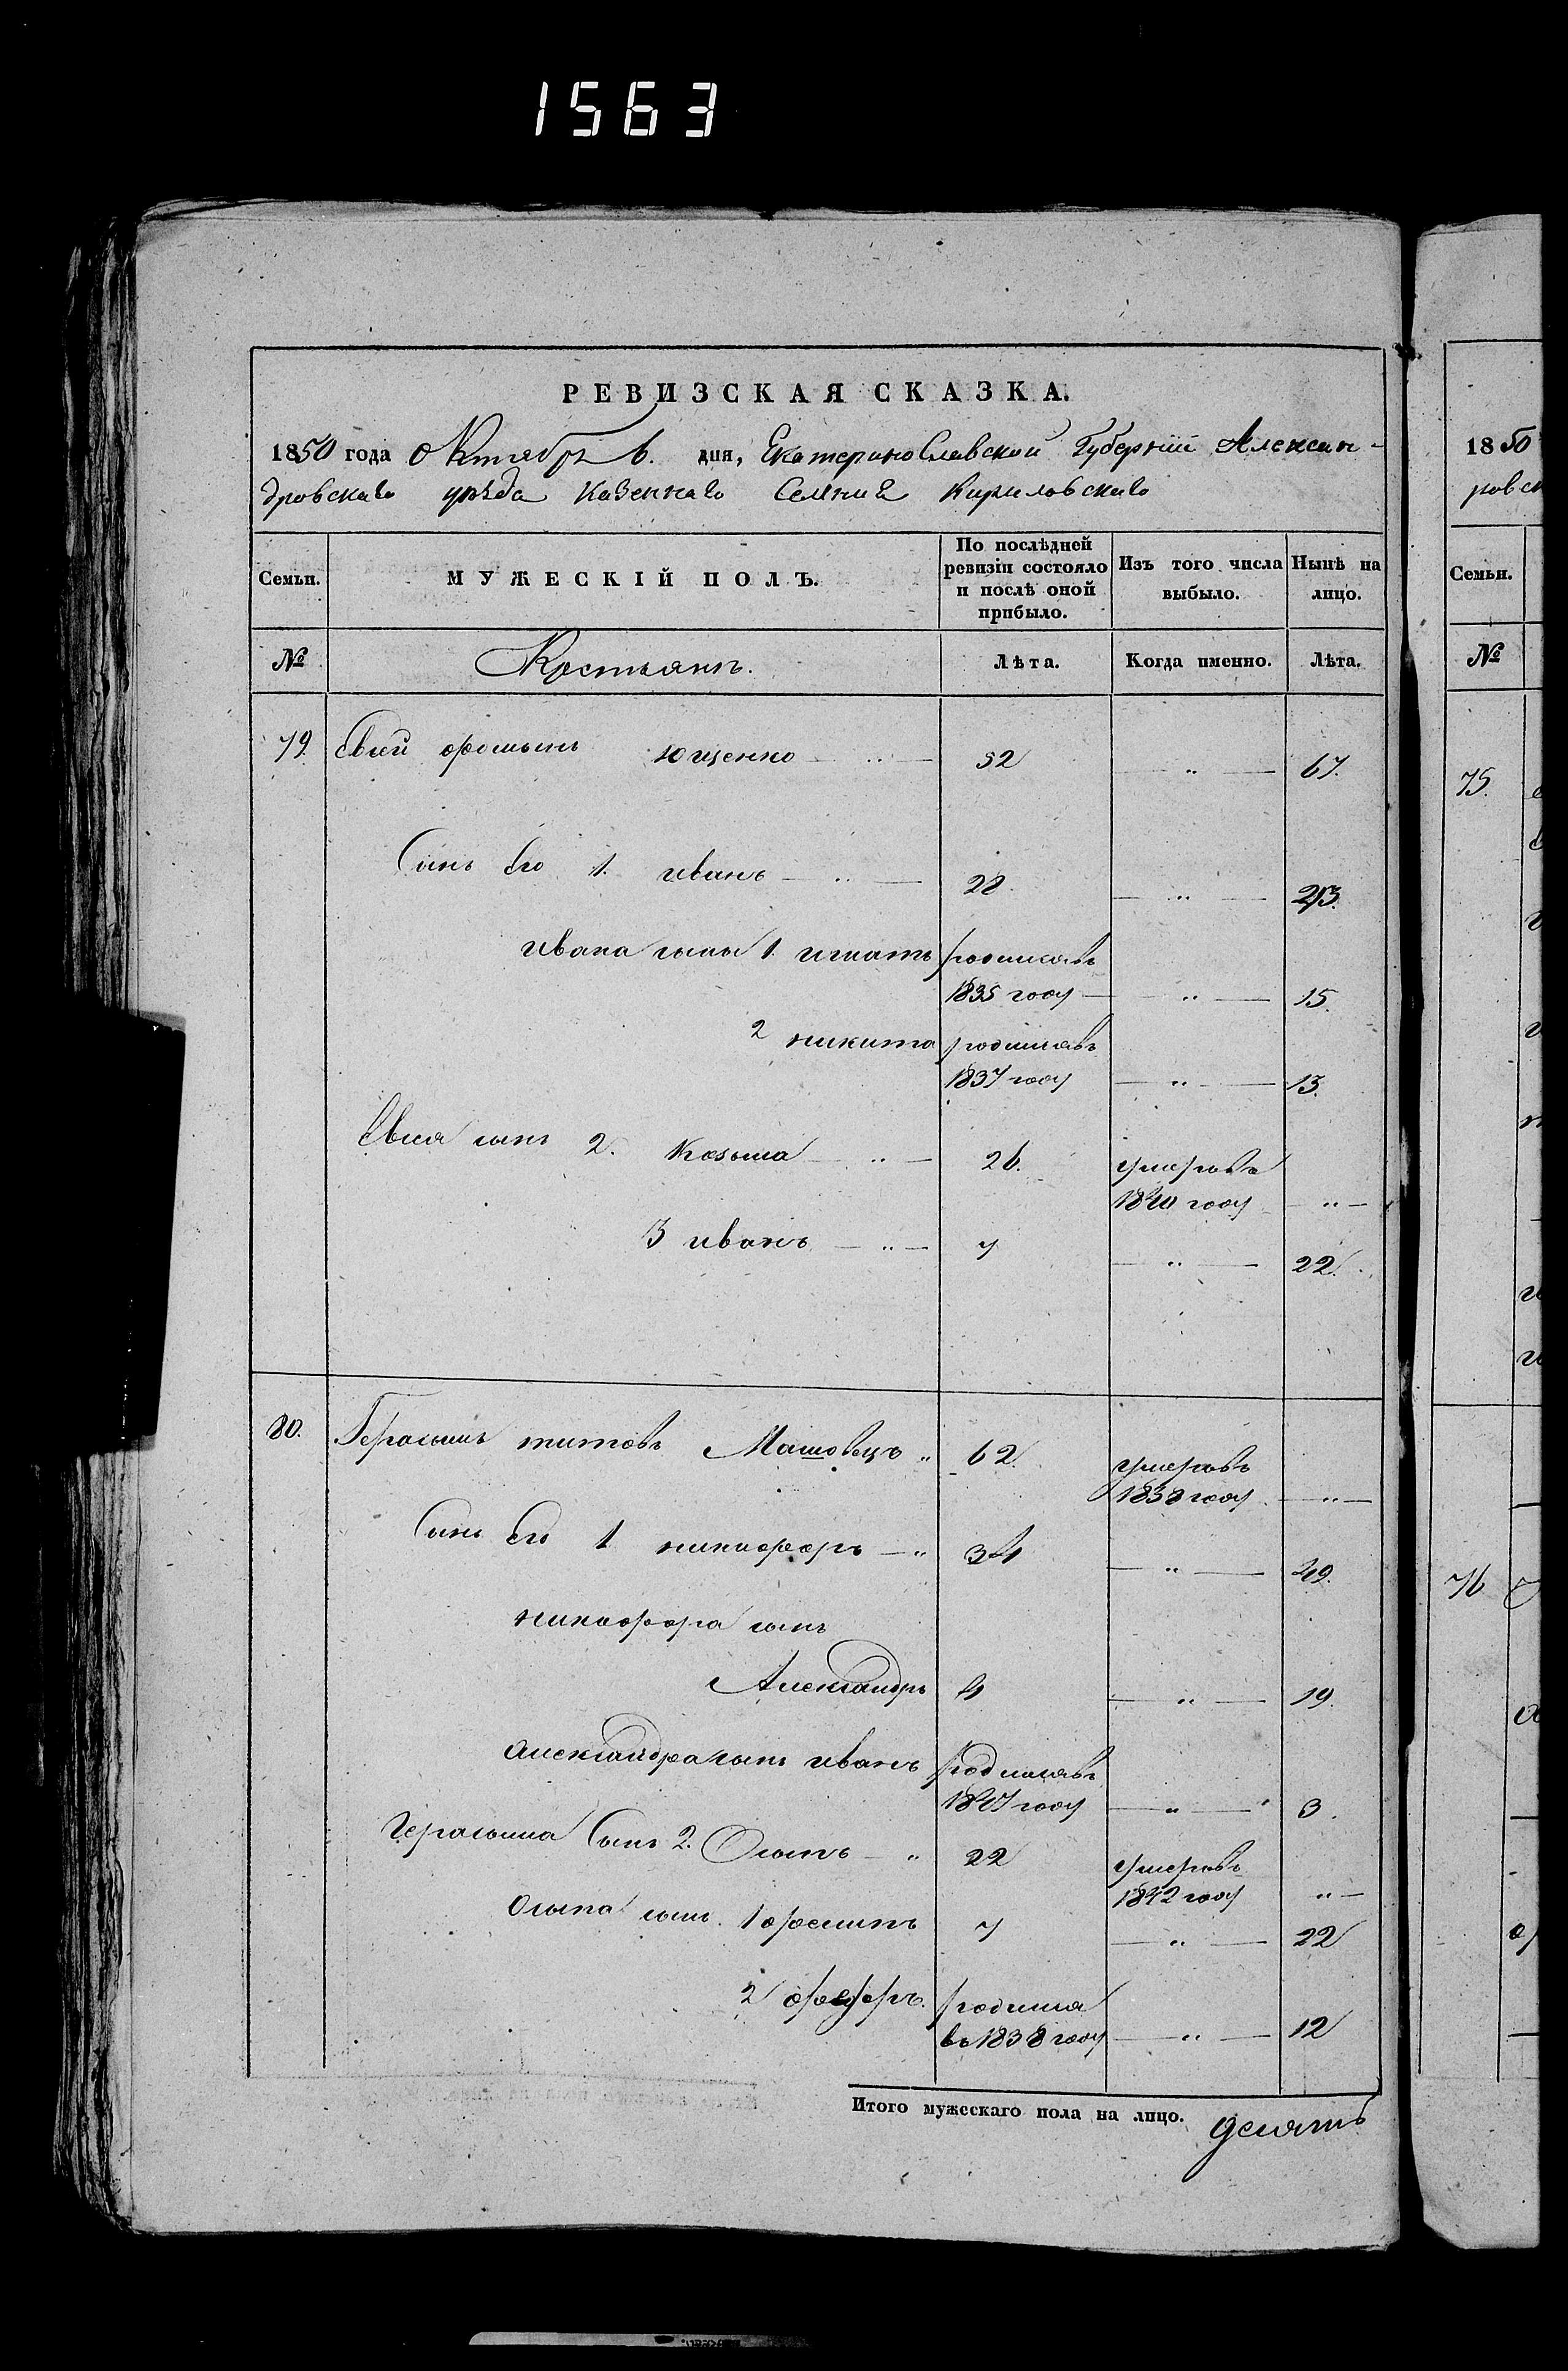 1563
РЕВИЗСКАЯ СКАЗКА.
1850 года Октября 6. дня, Екатеринославской Губернии Алексан-
дровскаго уезда Казеннаго Селения Кириловскаго
Семьи. МУЖЕСКІЙ ПОЛЪ. По послѣдней ревизіи состояло и послѣ оной прибыло. Изъ того числа выбыло. Нынѣ на лицо.
№ Крестьянъ. Лѣта. Когда именно. Лѣта.
79. Ющенко — " — 52 — " — 67.
Сынъ его 1. иванъ — " — 28. — " —
ивана сыны 1. игнатъ родился въ
1835 году — " — 15.
2 никита родился въ
1837 году — " — 13.
Евсея сынъ 2. Козьма — " — 26. умеръ въ
1840 году — " —
3 иванъ — " — 7 — " — 22.
80. Герасимъ титовъ Машовецъ " 62. умеръ въ
1838 году. — " —
Сынъ его 1 никифоръ — " 34 — " — 49.
никифора сынъ
Александръ 4 — " — 19.
александра сынъ иванъ родился въ
1847 году — " — 3.
Герасима Сынъ 2. Осипъ — " 22 умеръ въ
1842 году " —
Осипа сыны. 1 7 — " — 22
2 родился
въ 1838 году — " — 12
Итого мужескаго пола на лицо. десять
1850
ровск
Семьи.
№
75.
76